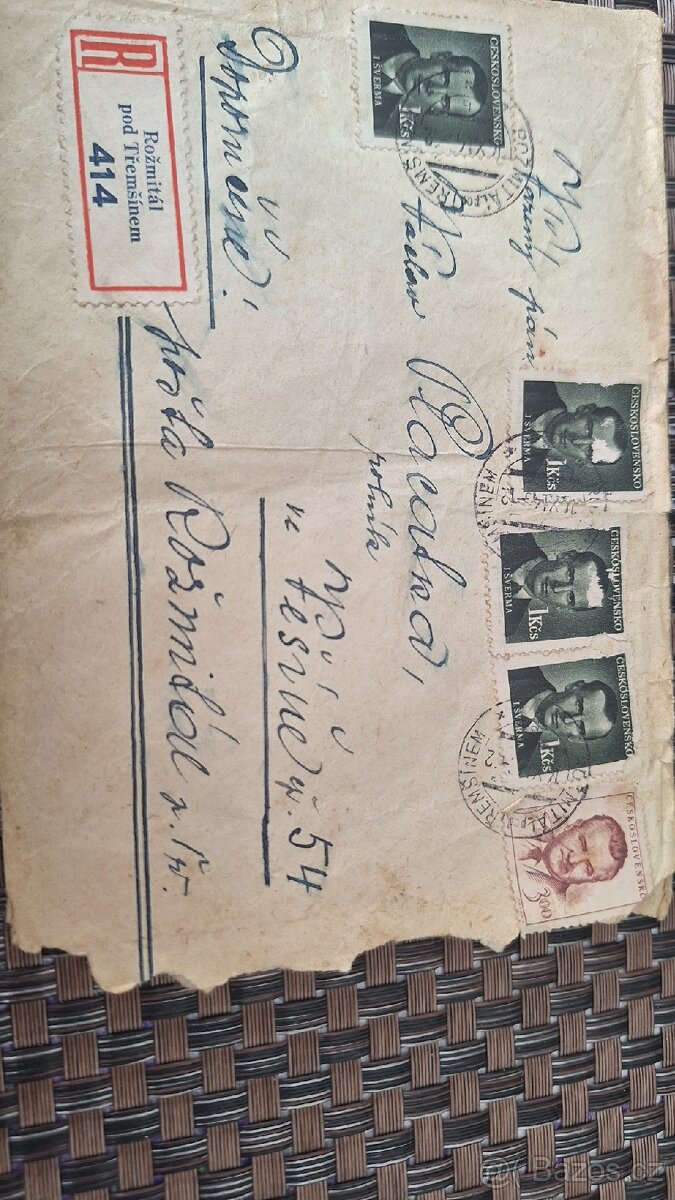 R
Rožmitál
pod Třemšínem
414
Doporučeně!
ČESKOSLOVENSKO
J ŠVERMA
1 Kčs
Vážený pán
Václav
rolník
ve
č. 54
pošta Rožmitál p. Tř.
ČESKOSLOVENSKO
J ŠVERMA
1 Kčs
ČESKOSLOVENSKO
J ŠVERMA
1 Kčs
ČESKOSLOVENSKO
J ŠVERMA
1 Kčs
ČESKOSLOVENSKO
3.00
Bazos.cz